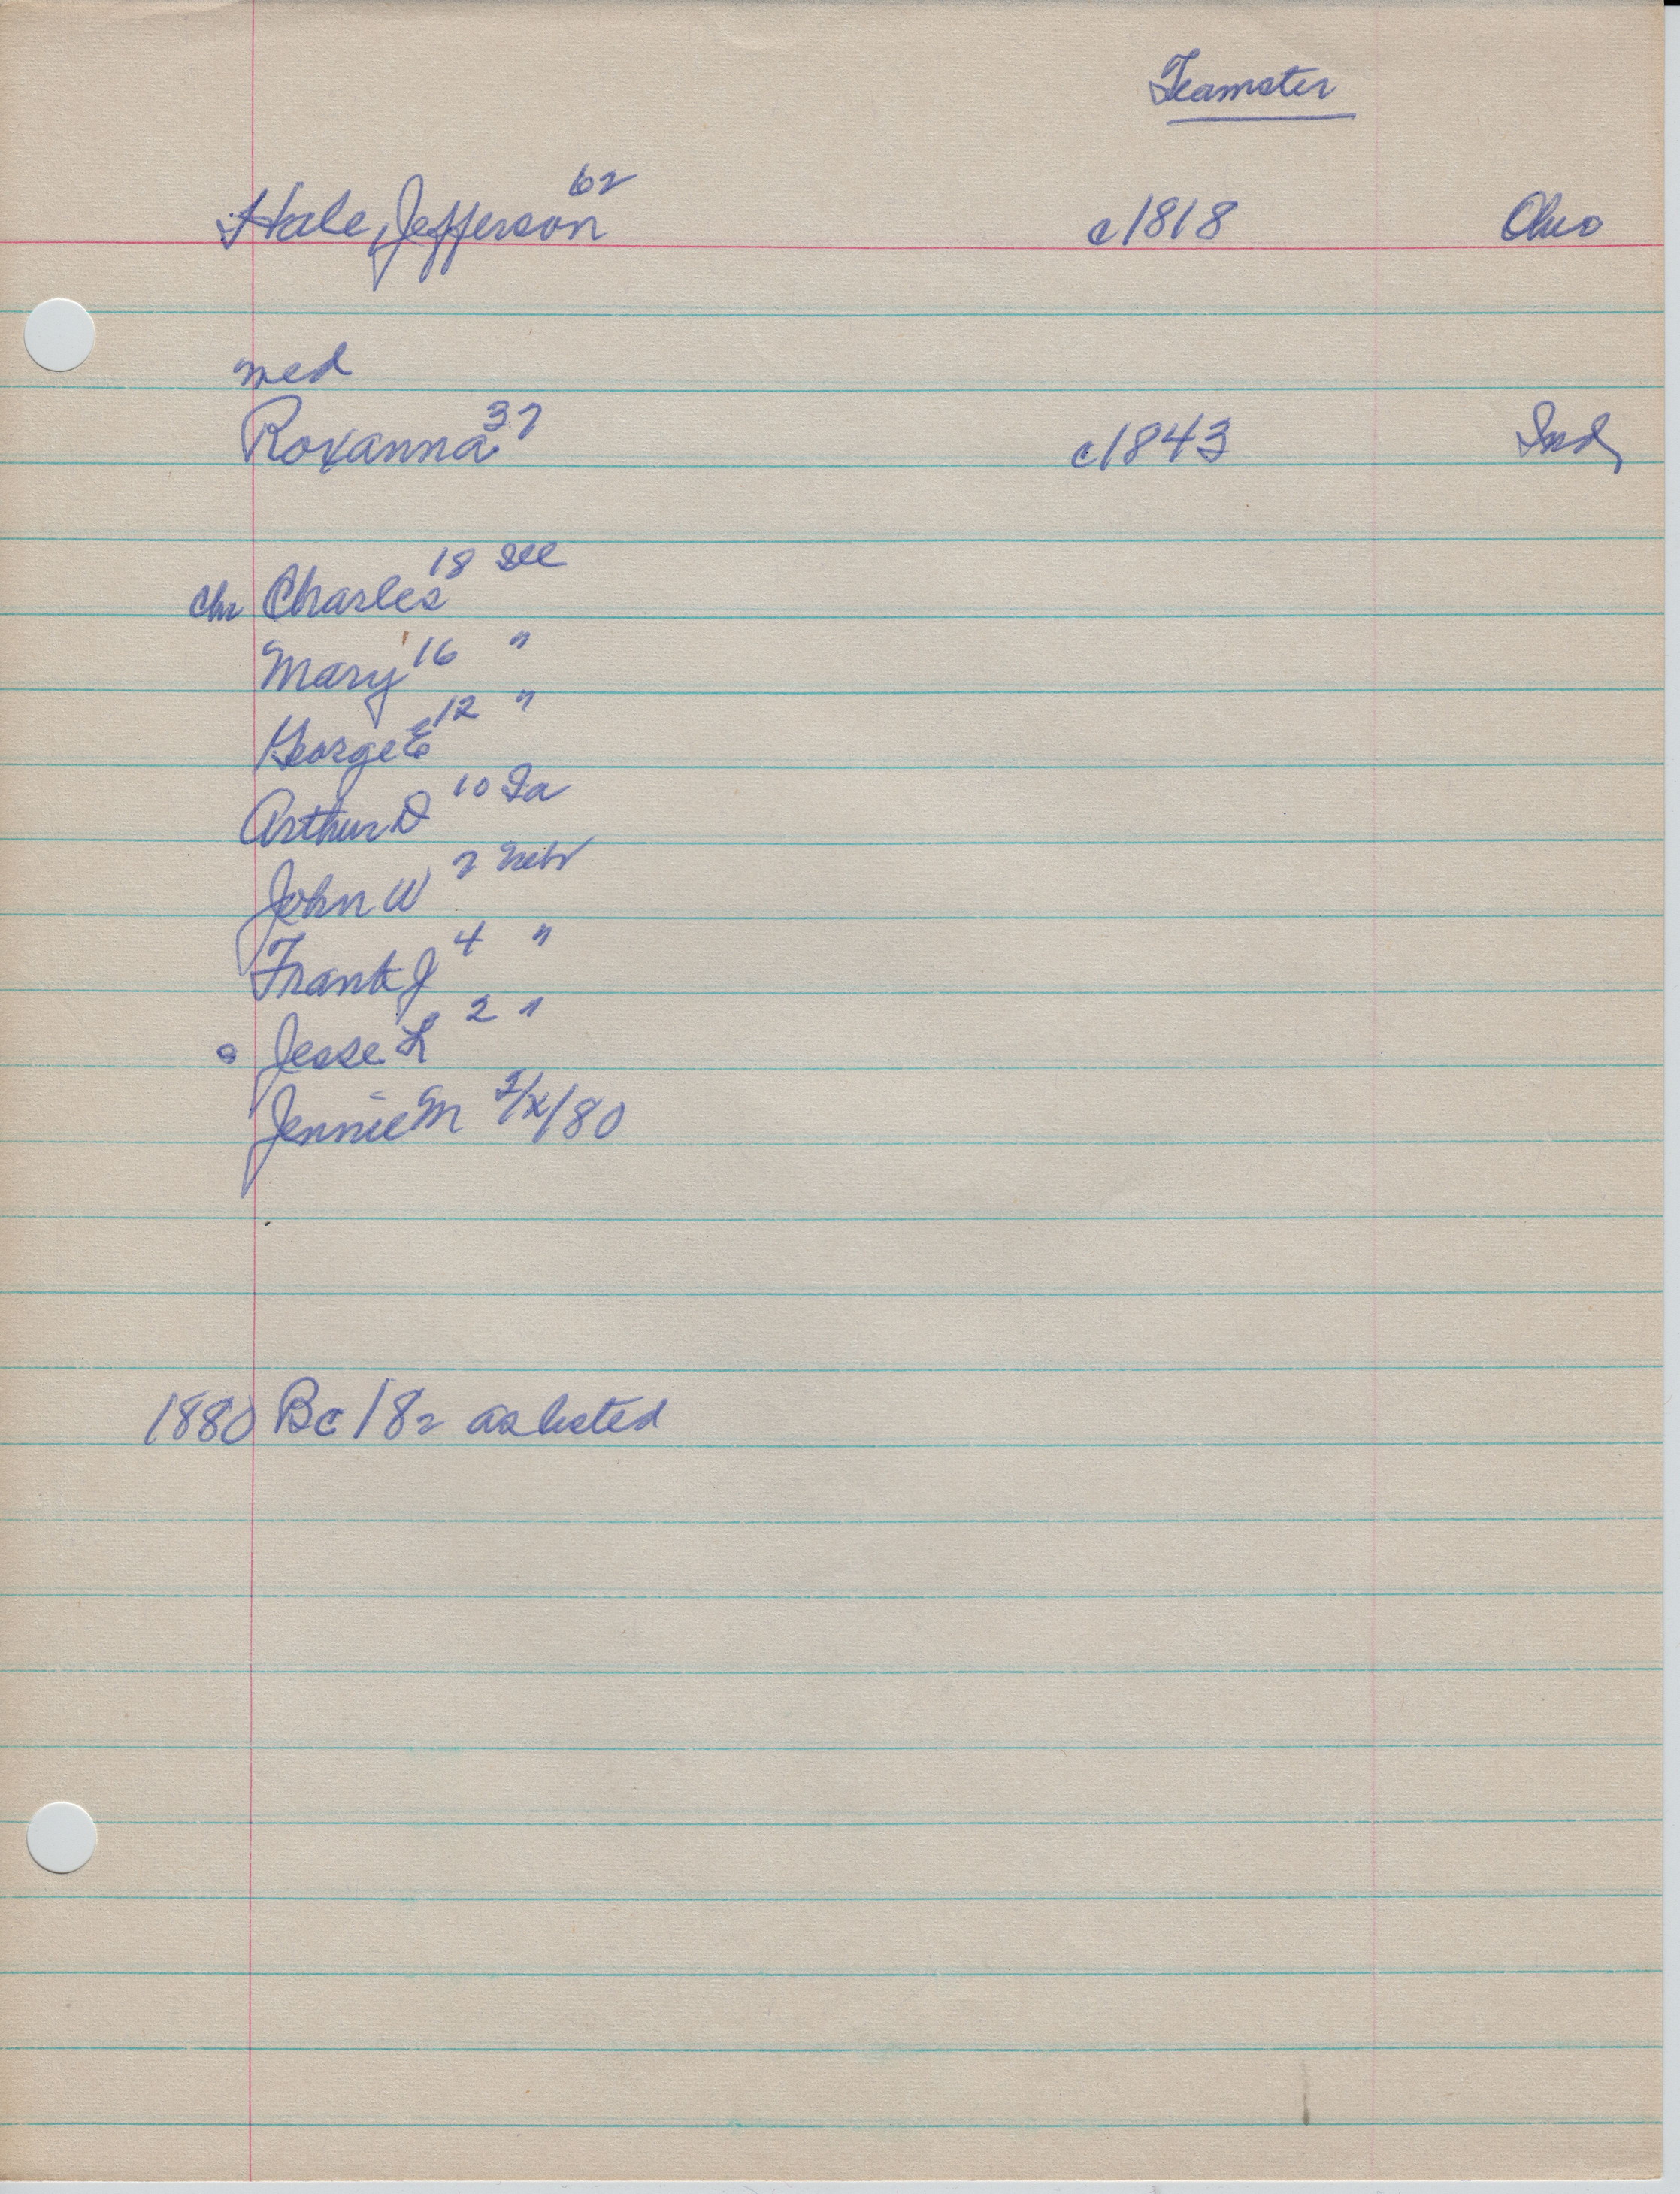 Teamster
Hale, Jefferson 62 c1818 Ohio
med
Roxanna 37 c1843 Ind,
chr Charles 18 Ill
Mary 16 "
George E 12 "
Arthur D 10 Ia
John W 7 Neb
Frank J 4 "
Jesse L 2 "
Jennie M 2/x/80
1880 Bc 182 as listed